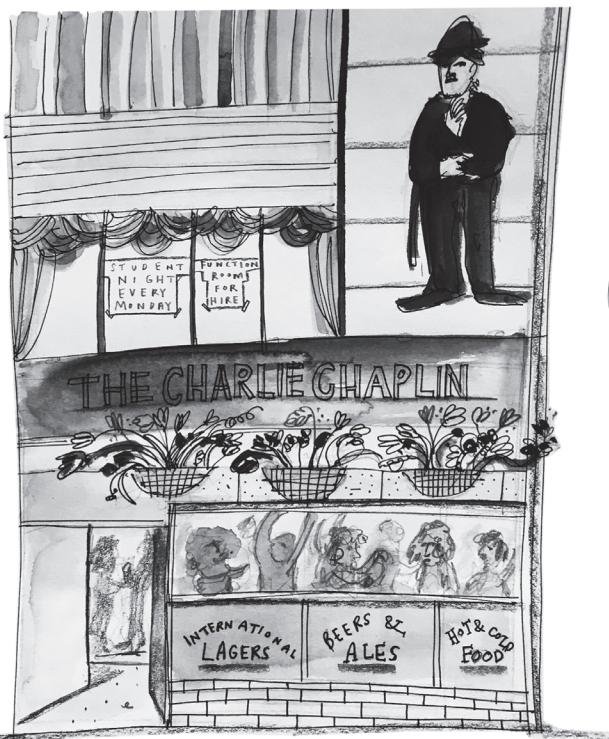 STUDENT
NIGHT
EVERY
MONDAY
FUNCTION
ROOM
FOR
HIRE
THE CHARLIE CHAPLIN
INTERNATIONAL
LAGERS
BEERS &
ALES
HOT & COLD
FOOD